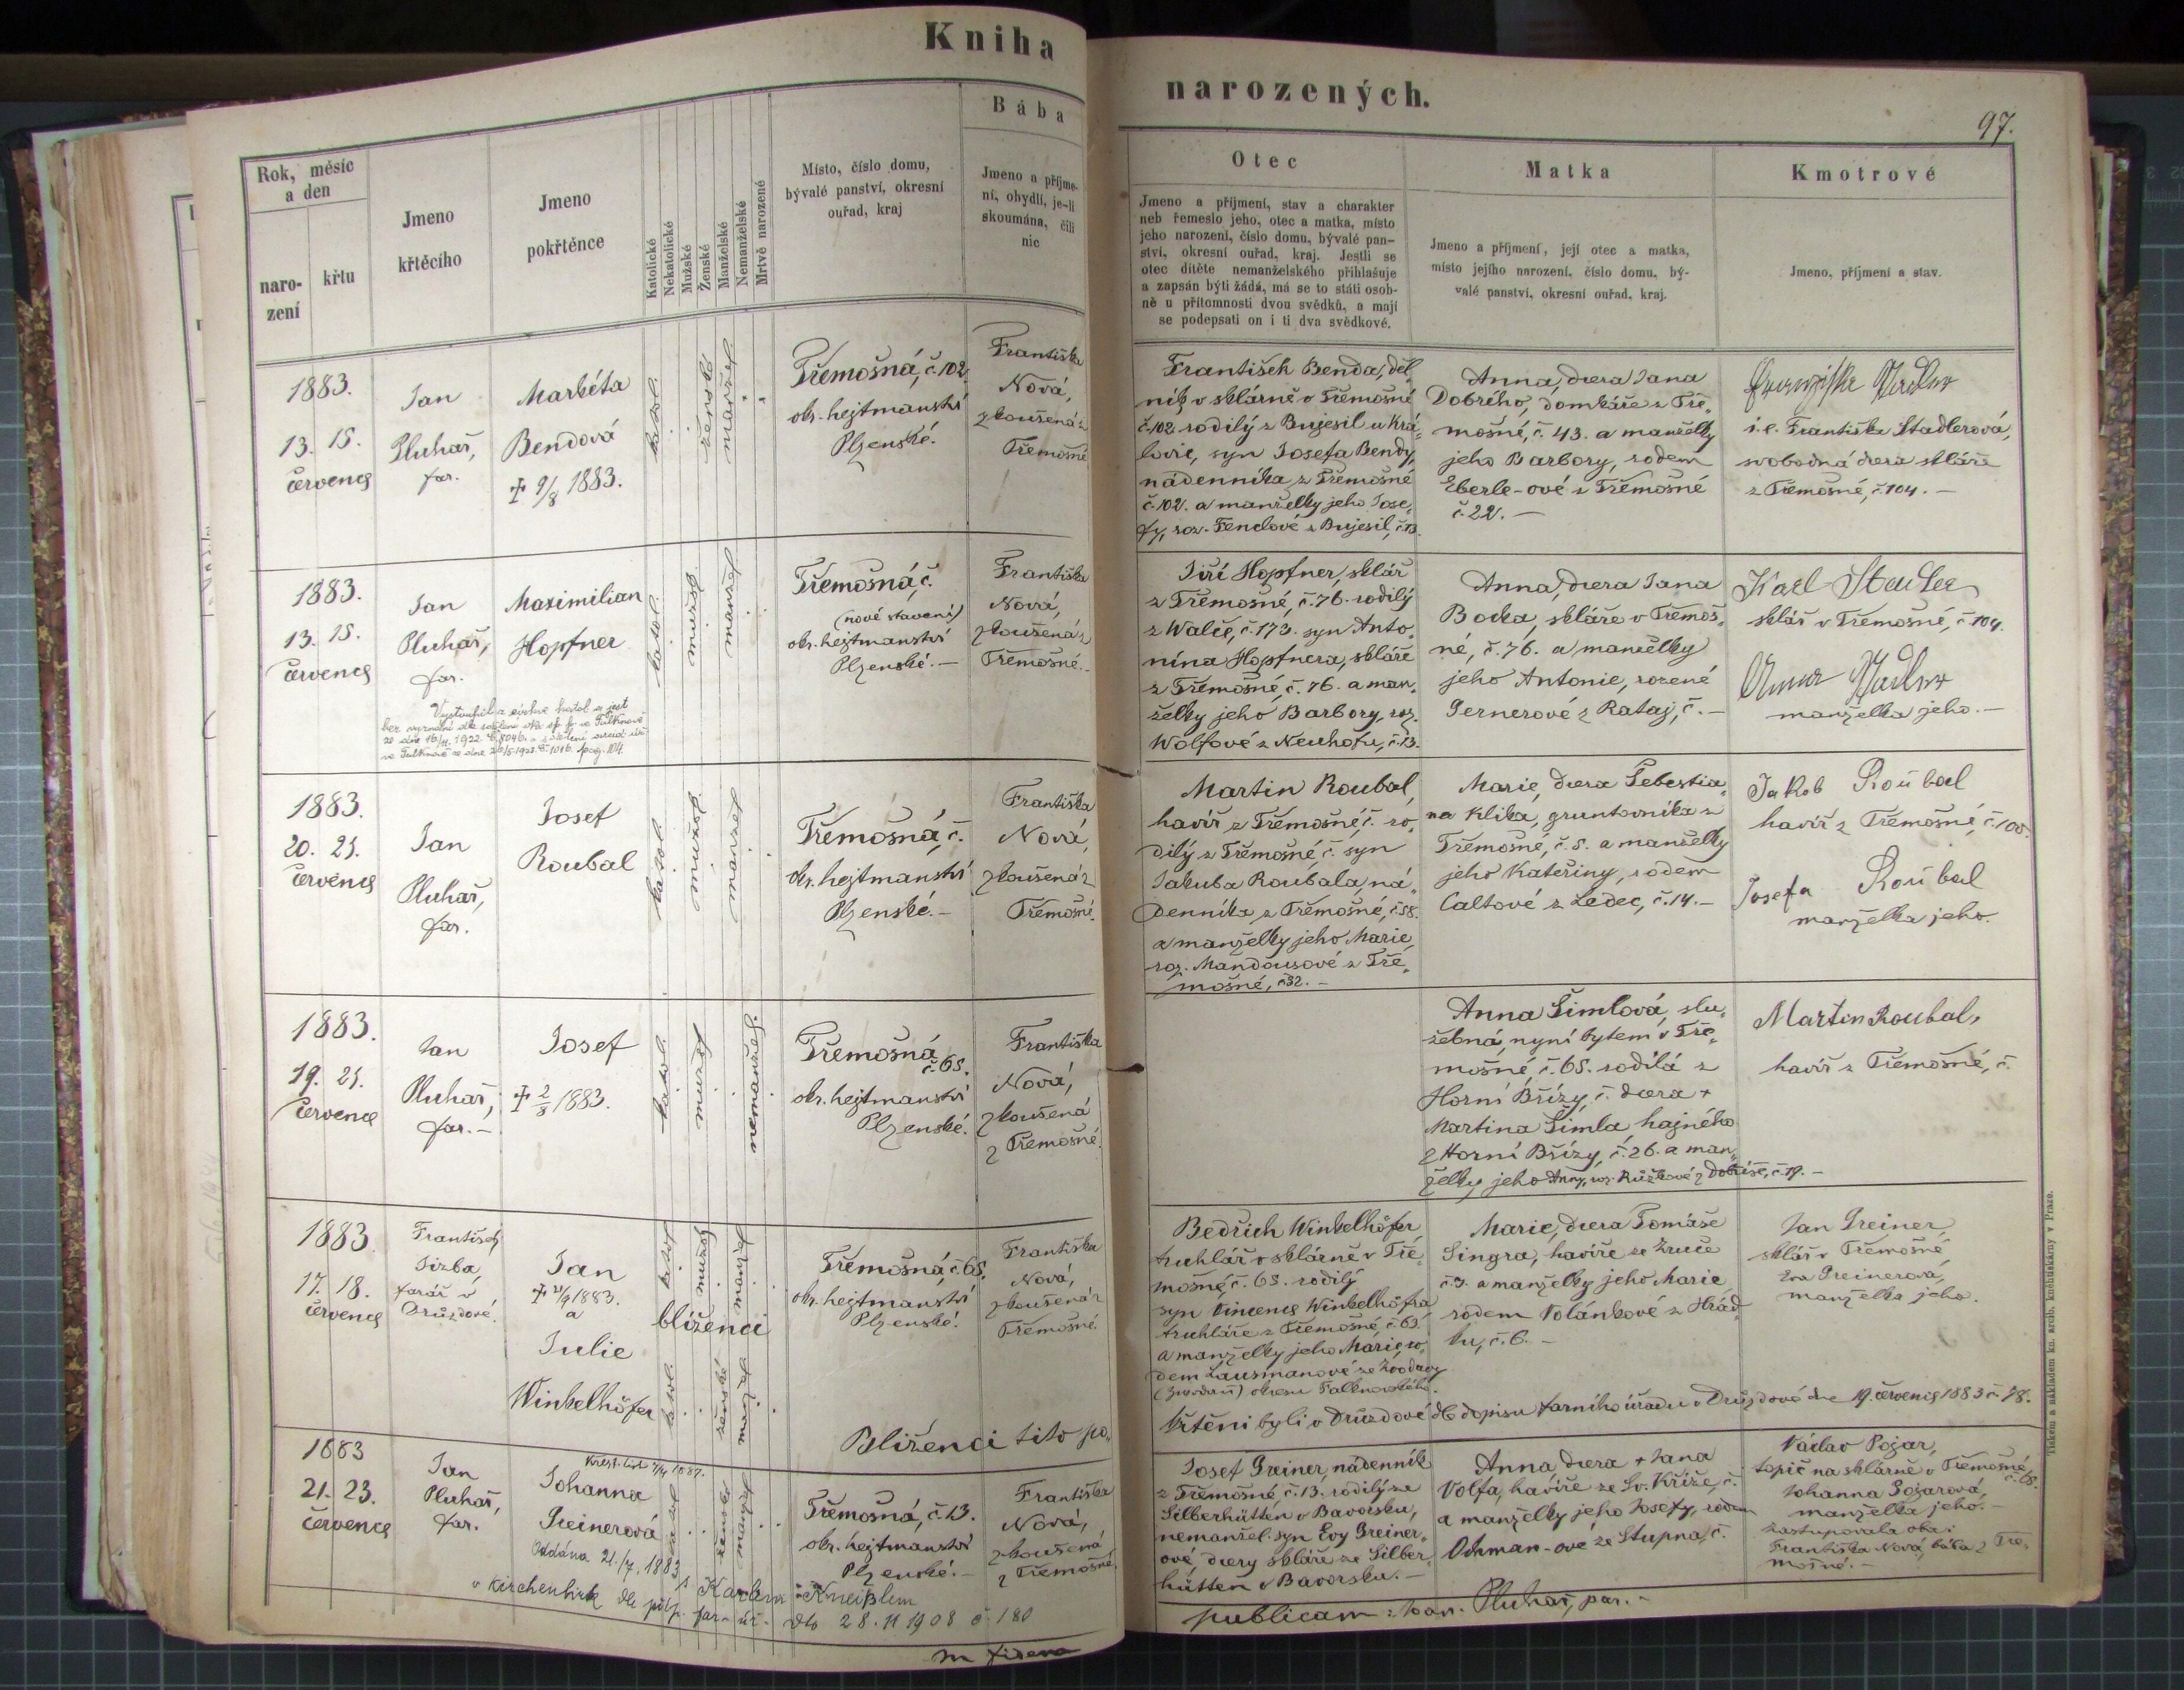 Kniha
narozených.
97.
Rok, měsíc
a den
naro-
zení
křtu
Jmeno
křtěcího
Jmeno
pokřtěnce
Katolické
Nekatolické
Mužské
Ženské
Manželské
Nemanželské
Mrtvě narozené
Místo, číslo domu,
bývalé panství, okresní
ouřad, kraj
Bába
Jmeno a příjme-
ní, obydlí, je-li
skoumána, čili
nic
Otec
Jmeno a příjmení, stav a charakter
neb řemeslo jeho, otec a matka, místo
jeho narození, číslo domu, bývalé pan-
ství, okresní ouřad, kraj. Jestli se
otec dítěte nemanželského přihlašuje
a zapsán býti žádá, má se to státi osob-
ně u přítomnosti dvou svědků, a mají
se podepsati on i ti dva svědkové.
Matka
Jmeno a příjmení, její otec a matka,
místo jejího narození, číslo domu, bý-
valé panství, okresní ouřad, kraj.
Kmotrové
Jmeno, příjmení a stav.
1883.
13. 15.
července
Jan
Pluhař,
far.
Markéta
Bendová
+ 9/8 1883.
katol.
ženské
manžel
Třemošná, č. 102.
okr. hejtmanství
Plzenské.
Františka
Nová,
zkoušená z
Třemošné
František Benda, děl-
ník v sklárně v Třemošné
č. 102 rodilý z Bujesil u Kra-
lovic, syn Josefa Bendy,
nádenníka z Třemošné
č. 102. a manželky jeho Jose-
fy, roz. Fenclové z Bujesil, č. 13.
Anna, dcera Jana
Dobrého, domkáře z Tře-
mošné, č. 43. a manželky
jeho Barbory, rodem
Eberle-ové z Třemošné
č. 22. —
Franziska Stadler
i. e. Františka Stadlerová,
svobodná dcera skláře
z Třemošné, č. 104. —
1883.
13. 15.
července
Jan
Pluhař,
far.
Maximilian
Hopfner
katol.
mužsk.
manžel
Třemošná, č.
(nové stavení)
okr. hejtmanství
Plzenské. —
Františka
Nová,
zkoušená z
Třemošné. —
Vystoupil z církve katol. a jest
bez vyznání dle sdělení okr. sp. p. ve Falknově
ze dne 16/11. 1922 č. 8046.
Jiří Hopfner, sklář
z Třemošné, č. 76. rodilý
z Walče, č. 173. syn Anto-
nína Hopfnera, skláře
z Třemošné, č. 76. a man-
želky jeho Barbory, roz.
Wolfové z Neuhofu, č. 13.
Anna, dcera Jana
Bocka, skláře v Třemoš-
né, č. 76. a manželky
jeho Antonie, rozené
Gernerové z Rataj, č. —
Karl Stadler
sklář v Třemošné, č. 104.
Anna Stadler
manželka jeho. —
1883.
20. 21.
července
Jan
Pluhař,
far.
Josef
Roubal
katol.
mužsk.
manžel
Třemošná, č.
okr. hejtmanství
Plzenské. —
Františka
Nová,
zkoušená z
Třemošné.
Martin Roubal,
havíř z Třemošné, č. ro-
dilý z Třemošné, č. syn
Jakuba Roubala, ná-
denníka z Třemošné, č. 58.
a manželky jeho Marie,
roz. Mandousové z Tře-
mošné, č. 32. —
Marie, dcera Šebestia-
na Klika, gruntovníka z
Třemošné, č. 5. a manželky
jeho Kateřiny, rodem
Caltové z Ledec, č. 14. —
Jakob Roubal
havíř z Třemošné, č. 100.
Josefa Roubal
manželka jeho.
1883.
19. 21.
července
Jan
Pluhař,
far. —
Josef
+ 2/8 1883.
katol.
mužsk
nemanžel.
Třemošná
č. 65.
okr. hejtmanství
Plzenské.
Františka
Nová,
zkoušená
z Třemošné.
Anna Šimlová, slu-
žebná, nyní bytem v Tře-
mošné, č. 65. rodilá z
Horní Břízy, č. dcera +
Martina Šimla, hajného
z Horní Břízy, č. 26. a man-
želky jeho Anny, roz. Růžkové z Dobříše, č. 19. —
Martin Roubal,
havíř z Třemošné, č.
1883
17. 18.
července
František
Sizba,
farář v
Druzdově.
Jan
+ 21/9 1883.
a
Julie
Winkelhöfer
katol.
mužsk
manžel
blíženci
katol.
ženské
manžel
Třemošná, č. 63.
okr. hejtmanství
Plzenské.
Františka
Nová,
zkoušená z
Třemošné.
Blíženci tito po-
Bedřich Winkelhöfer
truhlář v sklárně v Tře-
mošné, č. 63. rodilý
syn Vincence Winkelhöfra
truhláře z Třemošné, č. 63.
a manželky jeho Marie, ro-
dem Lausmanové ze
okresu Falknovského.
Marie, dcera Tomáše
Singra, havíře ze Zruče
č. 3. a manželky jeho Marie
rodem Volánkové z Hrád-
ku, č. 6. —
Jan Greiner,
sklář v Třemošné,
Eva Greinerová,
manželka jeho.
křtěni byli v Druzdově dle dopisu farního úřadu v Druzdově dne 19. července 1883 č. 98.
1883
21. 23.
července
Jan
Pluhař,
far.
Křest. list 7/4 1887.
Johanna
Greinerová
Oddána 21./7. 1883
s Karlem Kneißlem
v Kirchenbirk dle příp. far. úř. dto 28. 11 1908 č. 180
katol
žensk
manžel
Třemošná, č. 13.
okr. hejtmanství
Plzenské. —
Františka
Nová,
zkoušená
z Třemošné.
Josef Greiner, nádenník
z Třemošné č. 13. rodilý ze
Silberhütten v Bavorsku,
nemanžel. syn Evy Greiner-
ové, dcery skláře ze Silber-
hütten v Bavorsku. —
Anna dcera + Jana
Volfa, havíře ze Sv. Kříže, č.
a manželky jeho Josefy, rodem
Ochman-ové ze Stupna, č.
Václav Pojar,
topič na sklárně v Třemošné,
č. 68.
Johanna Pojarová,
manželka jeho. —
zastupovala oba:
Františka Nová, bába z Tře-
mošné. —
in fidem
publicam: Joan. Pluhař, par. —
Tiskem a nákladem kn. arcib. knihtiskárny v Praze.